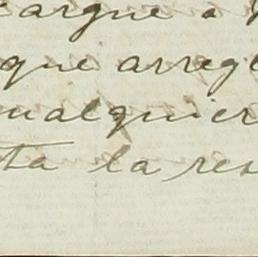 cargue a
que arregl
ualquier
ta la res